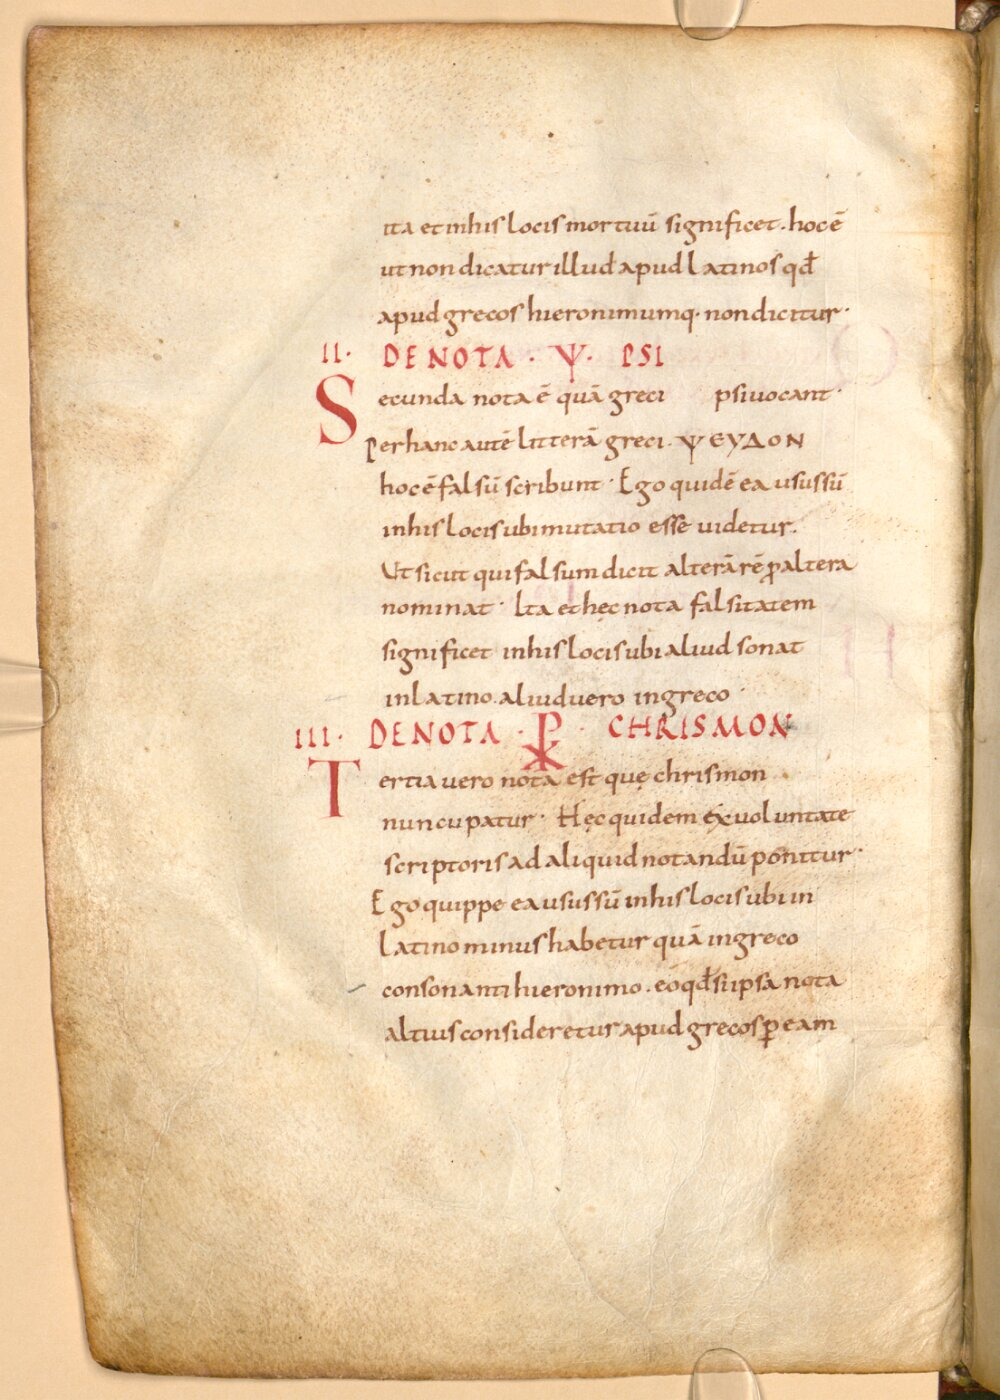 ita et in his locis mortuū significet. hoc ē
ut non dicatur illud apud latinos qđ
apud grecos hieronimumq· non dicitur·
II· DE NOTA · Ψ · PSI
Secunda nota ē quā greci psi uocant·
Per hanc autē litterā greci. ψεγΔοN
hoc ē falsū scribunt· Ego quidē ea usus sū
in his locis ubi mutatio esse uidetur.
Ut sicut qui falsum dicit alterā rē ꝓ altera
nominat· Ita et hęc nota falsitatem
significet in his locis ubi aliud sonat
in latino. aliud uero in greco·
III· DE NOTA · ⳩ · CHRISMON
Tertia uero nota est quę chrismon
nuncupatur· Hęc quidem ex uoluntate
scriptoris ad aliquid notandū ponitur·
Ego quippe ea usus sū in his locis ubi in
latino minus habetur quā in greco
consonanti hieronimo. eo qđ si ipsa nota
altius consideretur apud grecos ꝑ eam